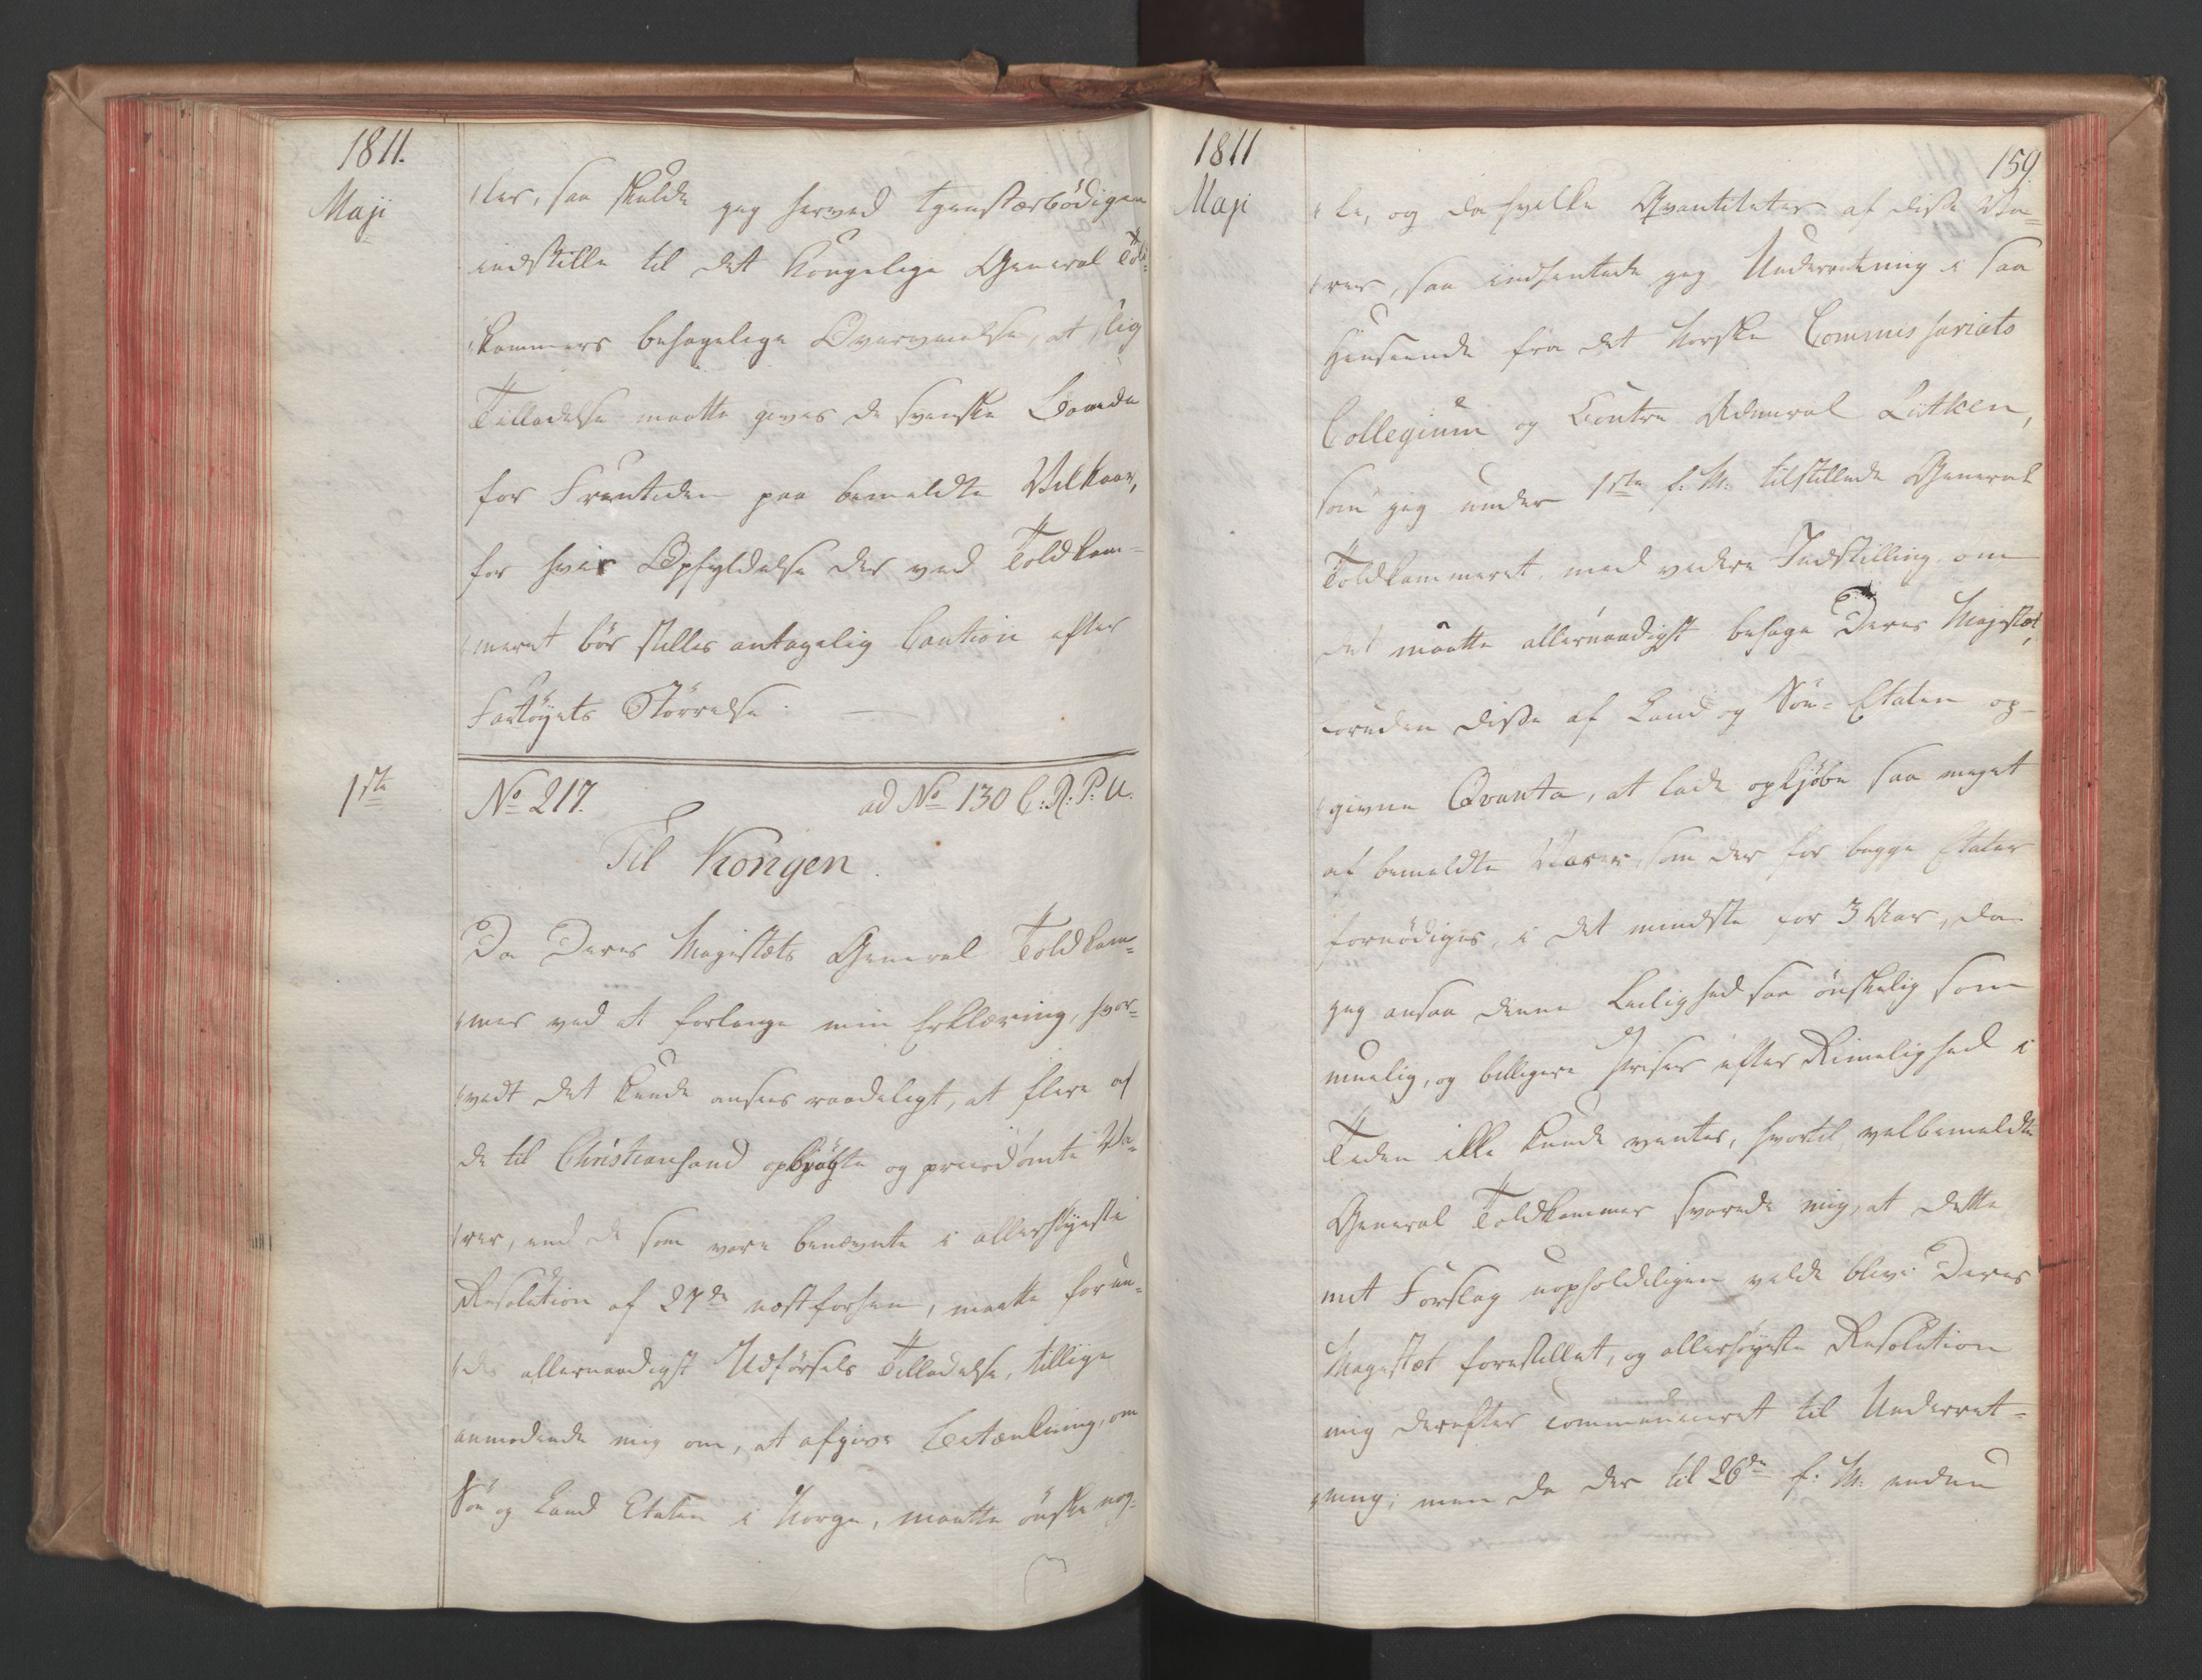 1811.
Maji
ler, saa skulde jeg herved tjenstærbödigen
indstille til det Kongelige General Told¬
kammers behagelige Overveielse, at slig
Tilladelse maatte gives de svenske Baaede
for Fremtiden paa bemeldte Vilkaar,
for hvis Opfyldelse der ved Toldkam¬
meret bör stilles antagelig Caution efter
Fartöyets Störrelse.
1ste
No 217. ad No 130 C: R: P: U.
Til Kongen.
Da Deres Majestæts General Toldkam¬
mer ved at forlange min Erklæring, hvor¬
vidt det kunde ansees raadeligt, at flere af
de til Christiansand opbragte og priisdömte Va¬
rer, end de som vare benævnte i allerhöyeste
Resolution af 27de næstforhen, maatte forun¬
des allernaadigst Udförsels Tilladelse, tillige
anmodede mig om, at afgive Betænkning, om
Söe og Land Etaten i Norge, maatte önske nog¬
1811
Maji
159
le, og da hvilke Qvantiteter af disse Va¬
rer, saa indhentede jeg Underretning i saa
Henseende fra det Norske Commissariats
Collegium og Contra Admiral Lütken,
som jeg under 1ste f. M. tilstillede General
Toldkammeret med videre Indstilling om
det maatte allernaadigst behage Deres Majestæt,
foruden disse af Land og Söe-Etaten op¬
givne Qvanta, at lade opkjöbe saa meget
af bemeldte Varer, som der for begge Etater
fornödiges, i det mindste for 3 Aar, da
jeg ansaa denne Leilighed saa önskelig som
muelig, og billigere Priser efter Rimelighed i
Tiden ikke kunde ventes, hvortil velbemeldte
General Toldkammer svarede mig, at dette
mit Forslag uopholdeligen vilde blive Deres
Majestæt forestillet, og allerhöyeste Resolution
mig derefter communiceret til Underret¬
ning; men da der til 26de f: M: endnu